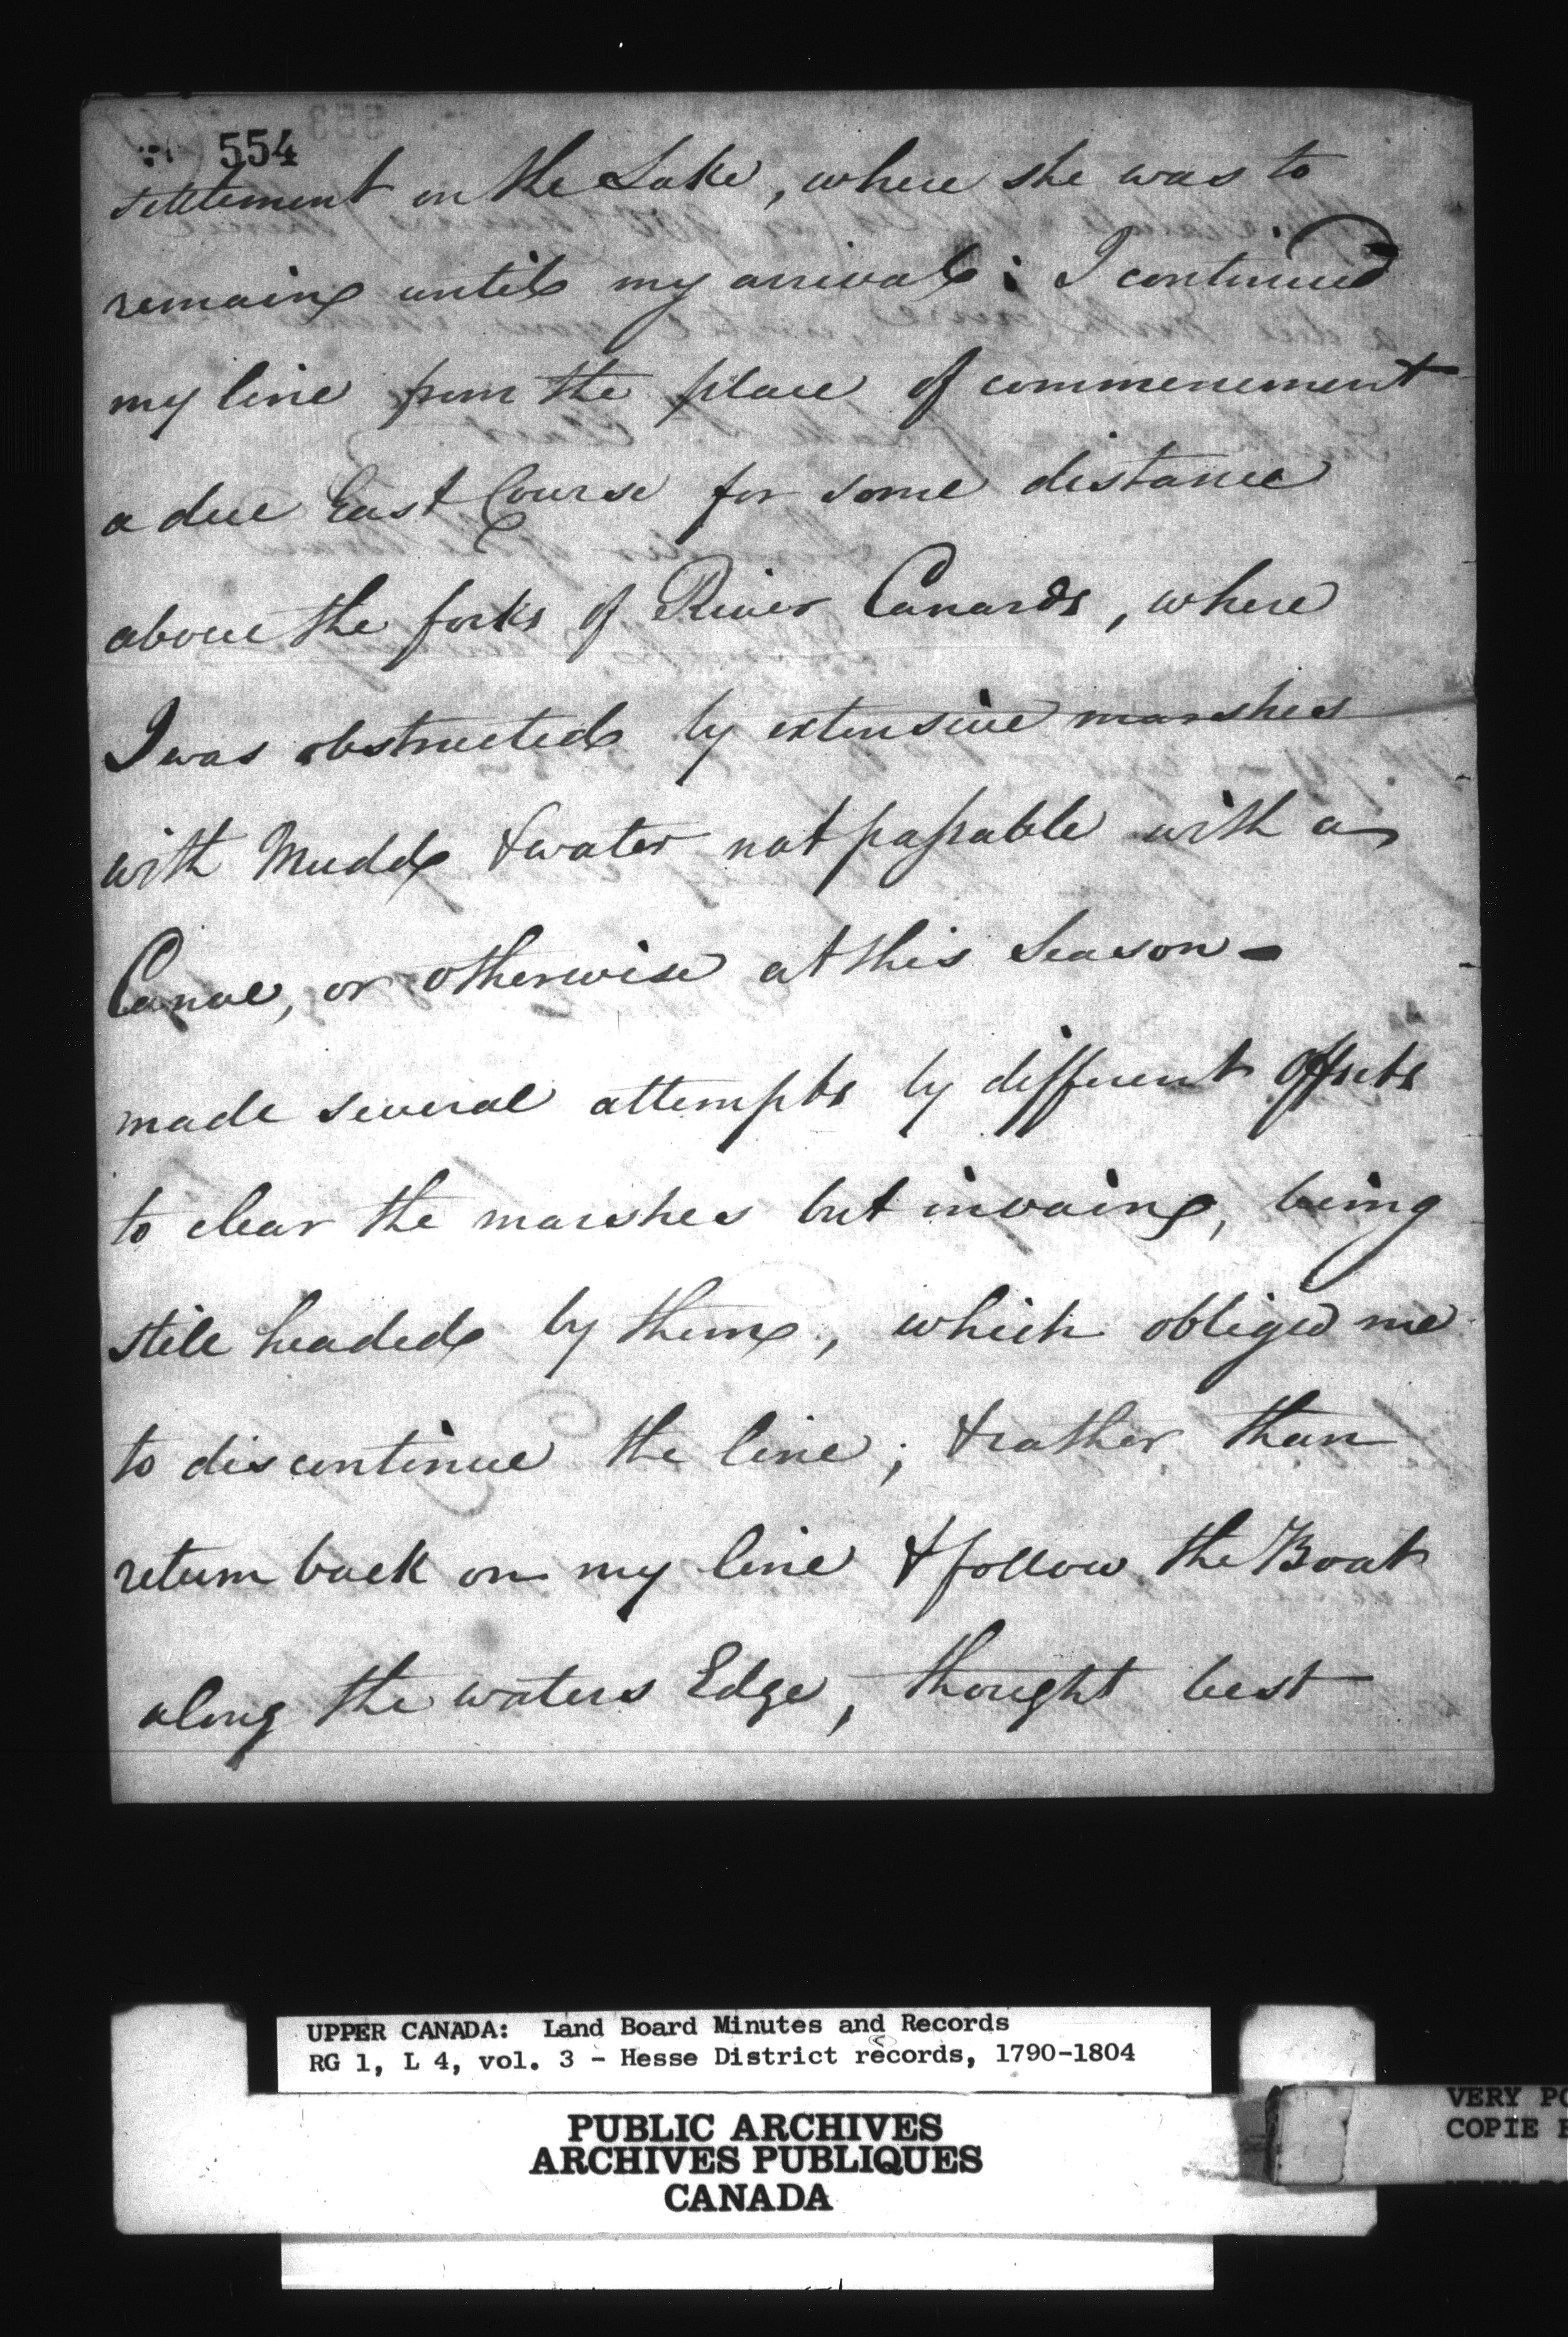 554
settlement on the Lake, where she was to
remain until my arrival: I continued
my line from the place of commencement
a due East Course for some distance
above the forks of River Canards, where
I was obstructed by extensive marshes
with Mudd & water not passable with a
Canoe, or otherwise at this Season -
made several attempts by different offsets
to clear the marshes but in vain, being
still headed by them, which obliged me
to discontinue the line; & rather than
return back on my line & follow the Boat
along the waters Edge, thought best
UPPER CANADA: Land Board Minutes and Records
RG 1, L 4, vol. 3 - Hesse District records, 1790-1804
PUBLIC ARCHIVES
ARCHIVES PUBLIQUES
CANADA
VERY PO
COPIE